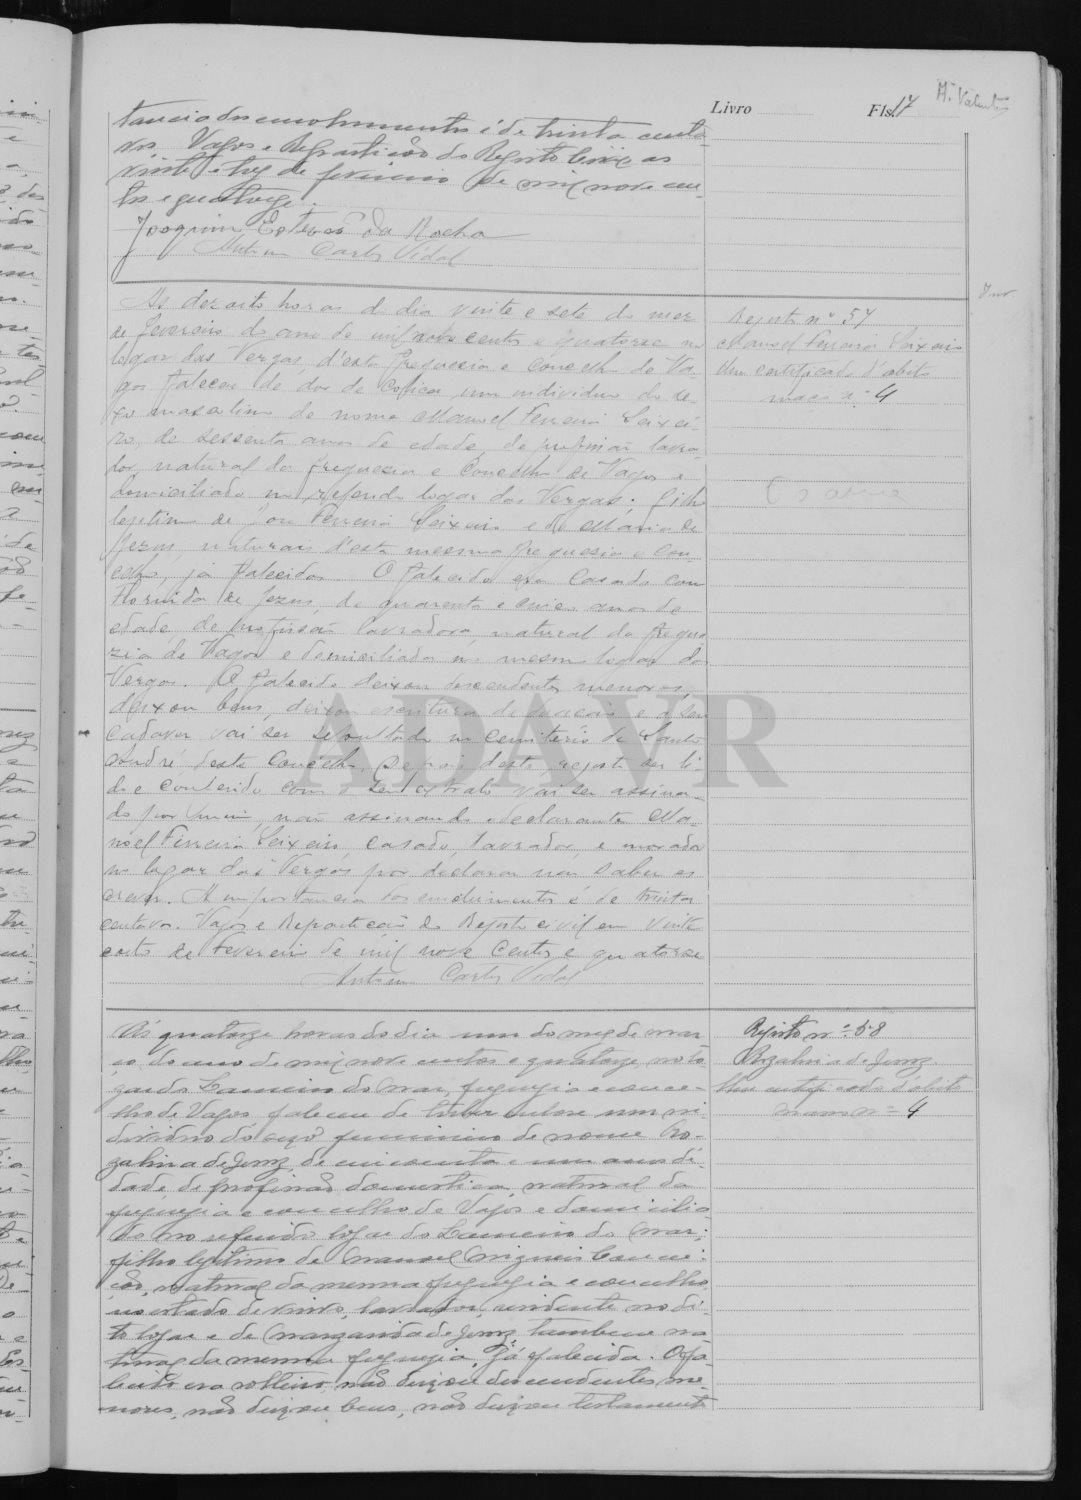 Livro Fls. 17
tancia dos emolumentos é de trinta centa-
vos. Vagos e Repartição do Registo Civil, as
vinte e trez de fevereiro de mil nove cen-
tos e quatorze.
Joaquim Esteves da Rocha
Antonio Carlos Vidal
Ás dezoito horas do dia vinte e sete do mez
de Fevereiro do ano de mil nove centos e quatorze no
logar das Vergas, d'esta freguezia e concelho de Va-
gos faleceu de dor de colica, um individuo do se-
xo masculino de nome Manoel Ferreira Seixei-
ro, de sessenta anos de edade, de profissão lavra-
dor, natural da freguezia e Concelho de Vagos e
domiciliado no referido logar das Vergas; filho
legitimo de José Ferreira Seixeiro e de Maria de
Jezus naturais d'esta mesma freguezia e con-
celho, já falecidos. O falecido era casado com
Florinda de Jezus, de quarenta e cinco anos de
edade de profissão lavradora, natural da fregue-
zia de Vagos e domiciliada no mesmo logar das
Vergas. O falecido deixou descendentes menores,
deixou bens, deixou escritura de doação e o seu
cadaver vai ser sepultado no cemitério de Santo
André deste Concelho. Depois deste registo ser li-
do e conferido com o seu extrato vai ser assina-
do por mim, não assinando o declarante Ma-
noel Ferreira Seixeiro, casado, lavrador, e morador
no logar das Vergas por declarar não saber es-
crever. A importancia dos emolumentos é de trinta
centavos. Vagos e Repartição do Registo civil em vinte
e oito de Fevereiro de mil nove centos e quatorze
Antonio Carlos Vidal
Registo nº 57
Manoel Ferreira Seixeiro
Um certificado d'obito
maço nº 4
Ás quatorze horas do dia um do mez de mar-
ço do ano de mil nove centos e quatorze, no lo-
gar do Lameiro do Mar, freguezia e conce-
lho de Vagos faleceu de tuberculose um in-
dividuo do sexo feminino de nome Ro-
zalina de Jezuz, de cincoenta e um anos d'i-
dade, de profissão domestica, natural da
freguezia e concelho de Vagos e domicilia-
da no referido logar do Lameiro do Mar;
filho legitimo de Manoel Migueis
natural da mesma freguezia e concelho,
no estado de viuvo, lavrador, residente no di-
to logar e de Margarida de Jezuz, tambem na-
tural da mesma freguezia, já falecida. O fa-
lecido era solteiro, não deixou descendentes me-
nores, não deixou bens, não deixou testamento
Registo nº 58
Rozalina de Jezuz
Um certificado d'obito
maço nº 4
ADAVR